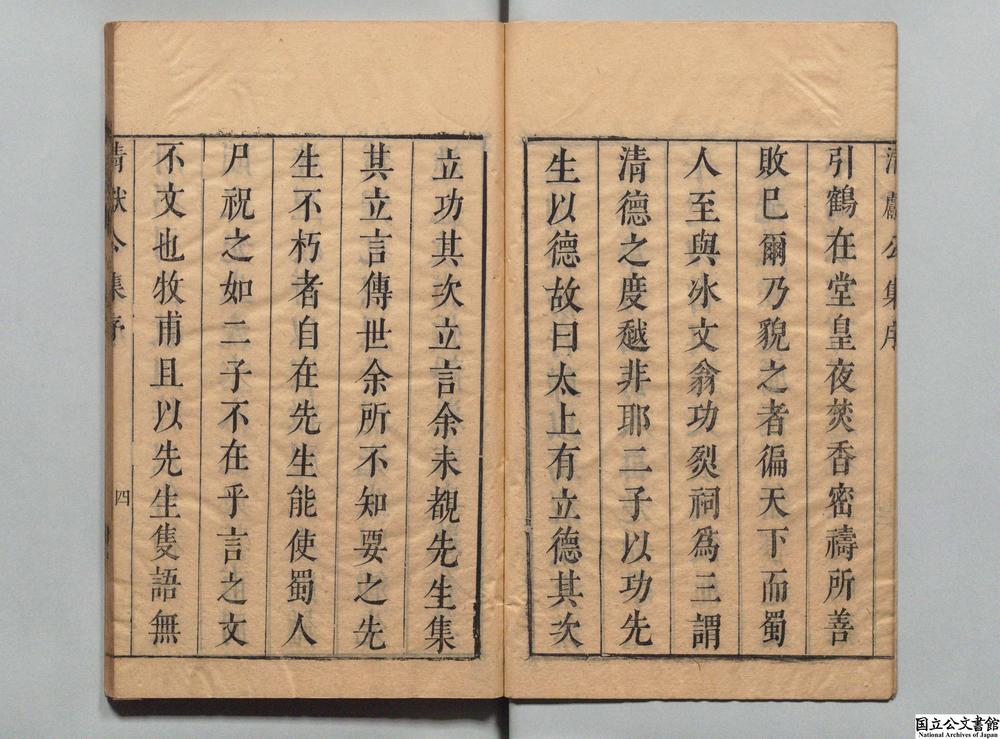 清獻公集序
引鶴在堂皇夜焚香密禱所善
敗巳爾乃貌之者徧天下而蜀
人至與冰文翁功裂祠為三謂
清德之度越非耶二子以功先
生以德故曰太上有立德其次
立功其次立言余未覩先生集
其立言傳世余所不知要之先
生不朽者自在先生能使蜀人
尸祝之如二子不在乎言之文
不文也牧甫且以先生隻語無
清獻公集序
四
国立公文書館
National Archives of Japan